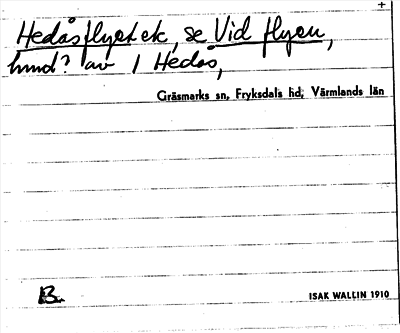 Hedåsflyet ek, se Vid flyen,
hmd? av 1 Hedås,
Gräsmarks sn, Fryksdals hd, Värmlands län
B.
ISAK WALLIN 1910
+